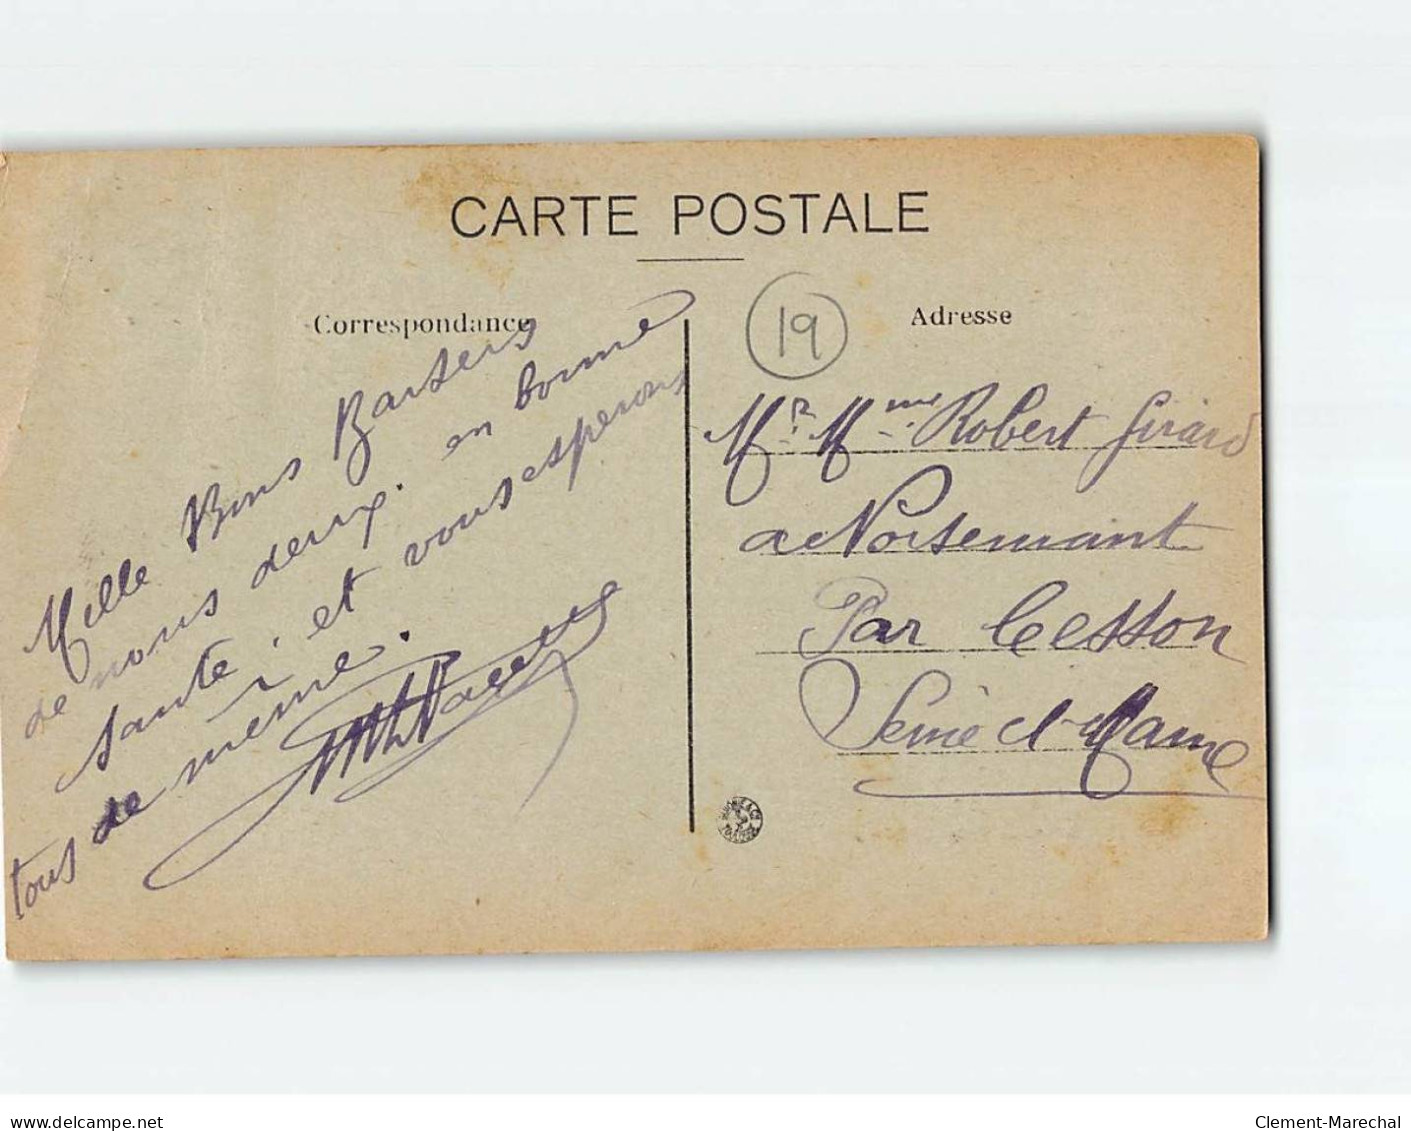 CARTE POSTALE
Correspondance
Mille Bons Baisers
de nous deux. en bonne
santé, et vous espérons
tous de même.
19
Adresse
Mr Mme Robert Girard
a Noisemant
Par Cesson
Seine et Marne
www.delcampe.net
Clement-Marechal